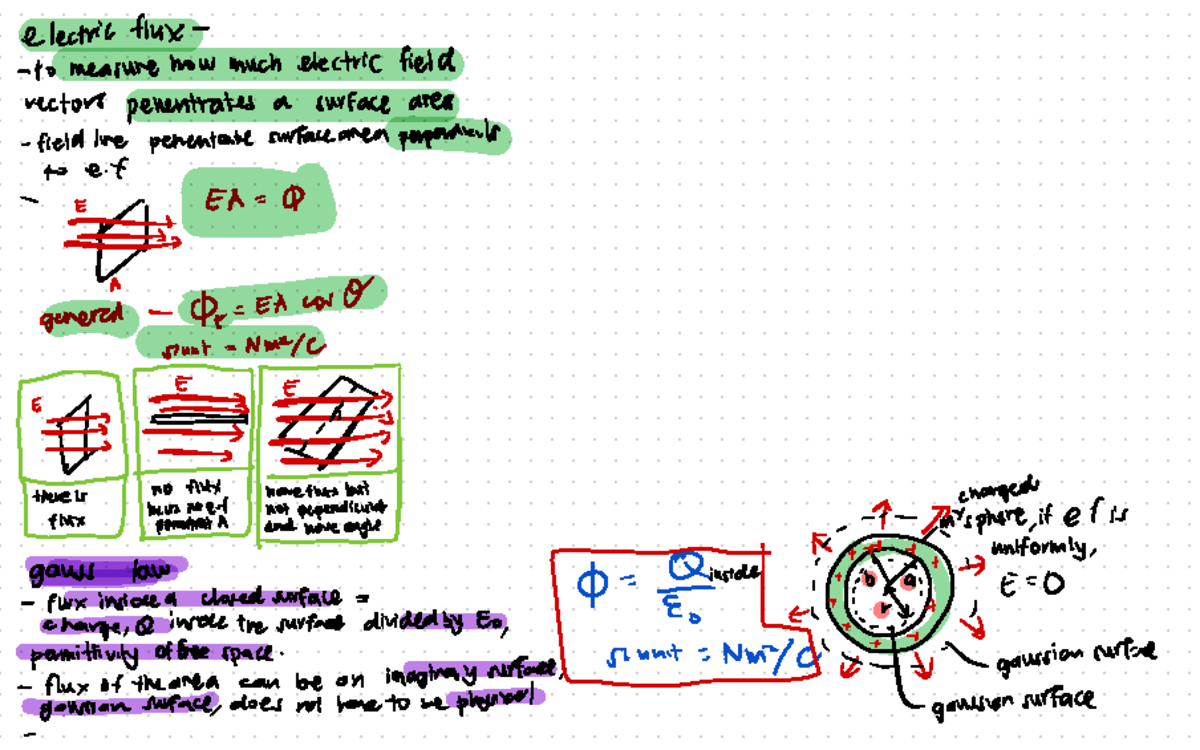 electric flux -
- to measure how much electric field
vectors penentrates a surface area
- field line penentrate surface area
to e.f
-
E
EA = Φ
A
general - Φ = EA cos θ
si unit = Nm²/C
E
E
E
there is
flux
no flux
no e.f
A
have flux but
not perpendicular
and have angle
gauss law
- flux inside a closed surface =
charge, Q inside the surface divided by E₀,
permittivity of free space.
- flux of the area can be an imaginary surface,
gaussian surface, does not have to be physical
-
Φ = Q inside / E₀
si unit = Nm²/C
charged
sphere, if e f is
uniformly,
E = 0
b
a
r
gaussion surface
gaussion surface